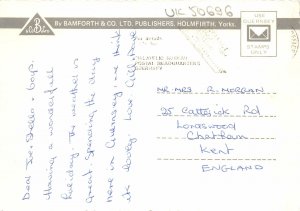 UK 50696
By BAMFORTH & CO. LTD. PUBLISHERS, HOLMFIRTH, Yorks.
USE
GUERNSEY
STAMPS
ONLY
POSTAL HEADQUARTERS
GUERNSEY
Dear Joe, Stella & boys.
Having a wonderful
holiday. The weather is
great. Spending the day
here in Guernsey, we think
its lovely. Love
MR. MRS R. MORGAN
25 Catterick Rd
LORDSWOOD
Chatham
Kent
ENGLAND